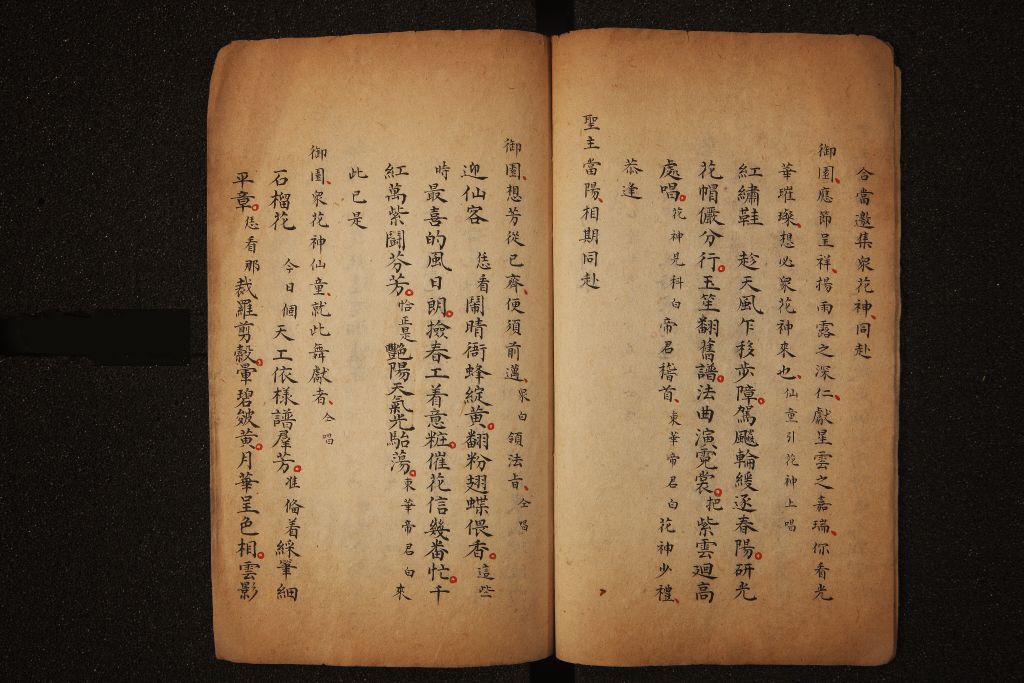 合當邀集衆花神、同赴
御園、應節呈祥、揚雨露之深仁、獻星雲之嘉瑞、你看光
華璀璨、想必衆花神來也、仙童引花神上唱
紅繡鞋 趁天風乍移步障。駕飈輪緩逐春陽。研光
花帽儼分行。玉笙翻舊譜。法曲演霓裳。把紫雲廻高
處唱。花神見科白帝君稽首、東華帝君白花神少禮、
恭逢
聖主當陽、相期同赴
御園、想芳從已齊、便須前邁、衆白領法旨、仝唱
迎仙客 恁看鬧晴衙蜂綻黃。翻粉翅蝶偎香。這些
時最喜的風日朗。撿春工着意粧。催花信幾番忙。千
紅萬紫鬭芬芳。恰正是艷陽天氣光駘蕩。東華帝君白來
此已是
御園、衆花神仙童、就此舞獻者、仝唱
石榴花 今日個天工依樣譜羣芳。准俻着綵筆細
平章。恁看那裁羅剪縠。暈碧皴黃。月華呈色相。雲影